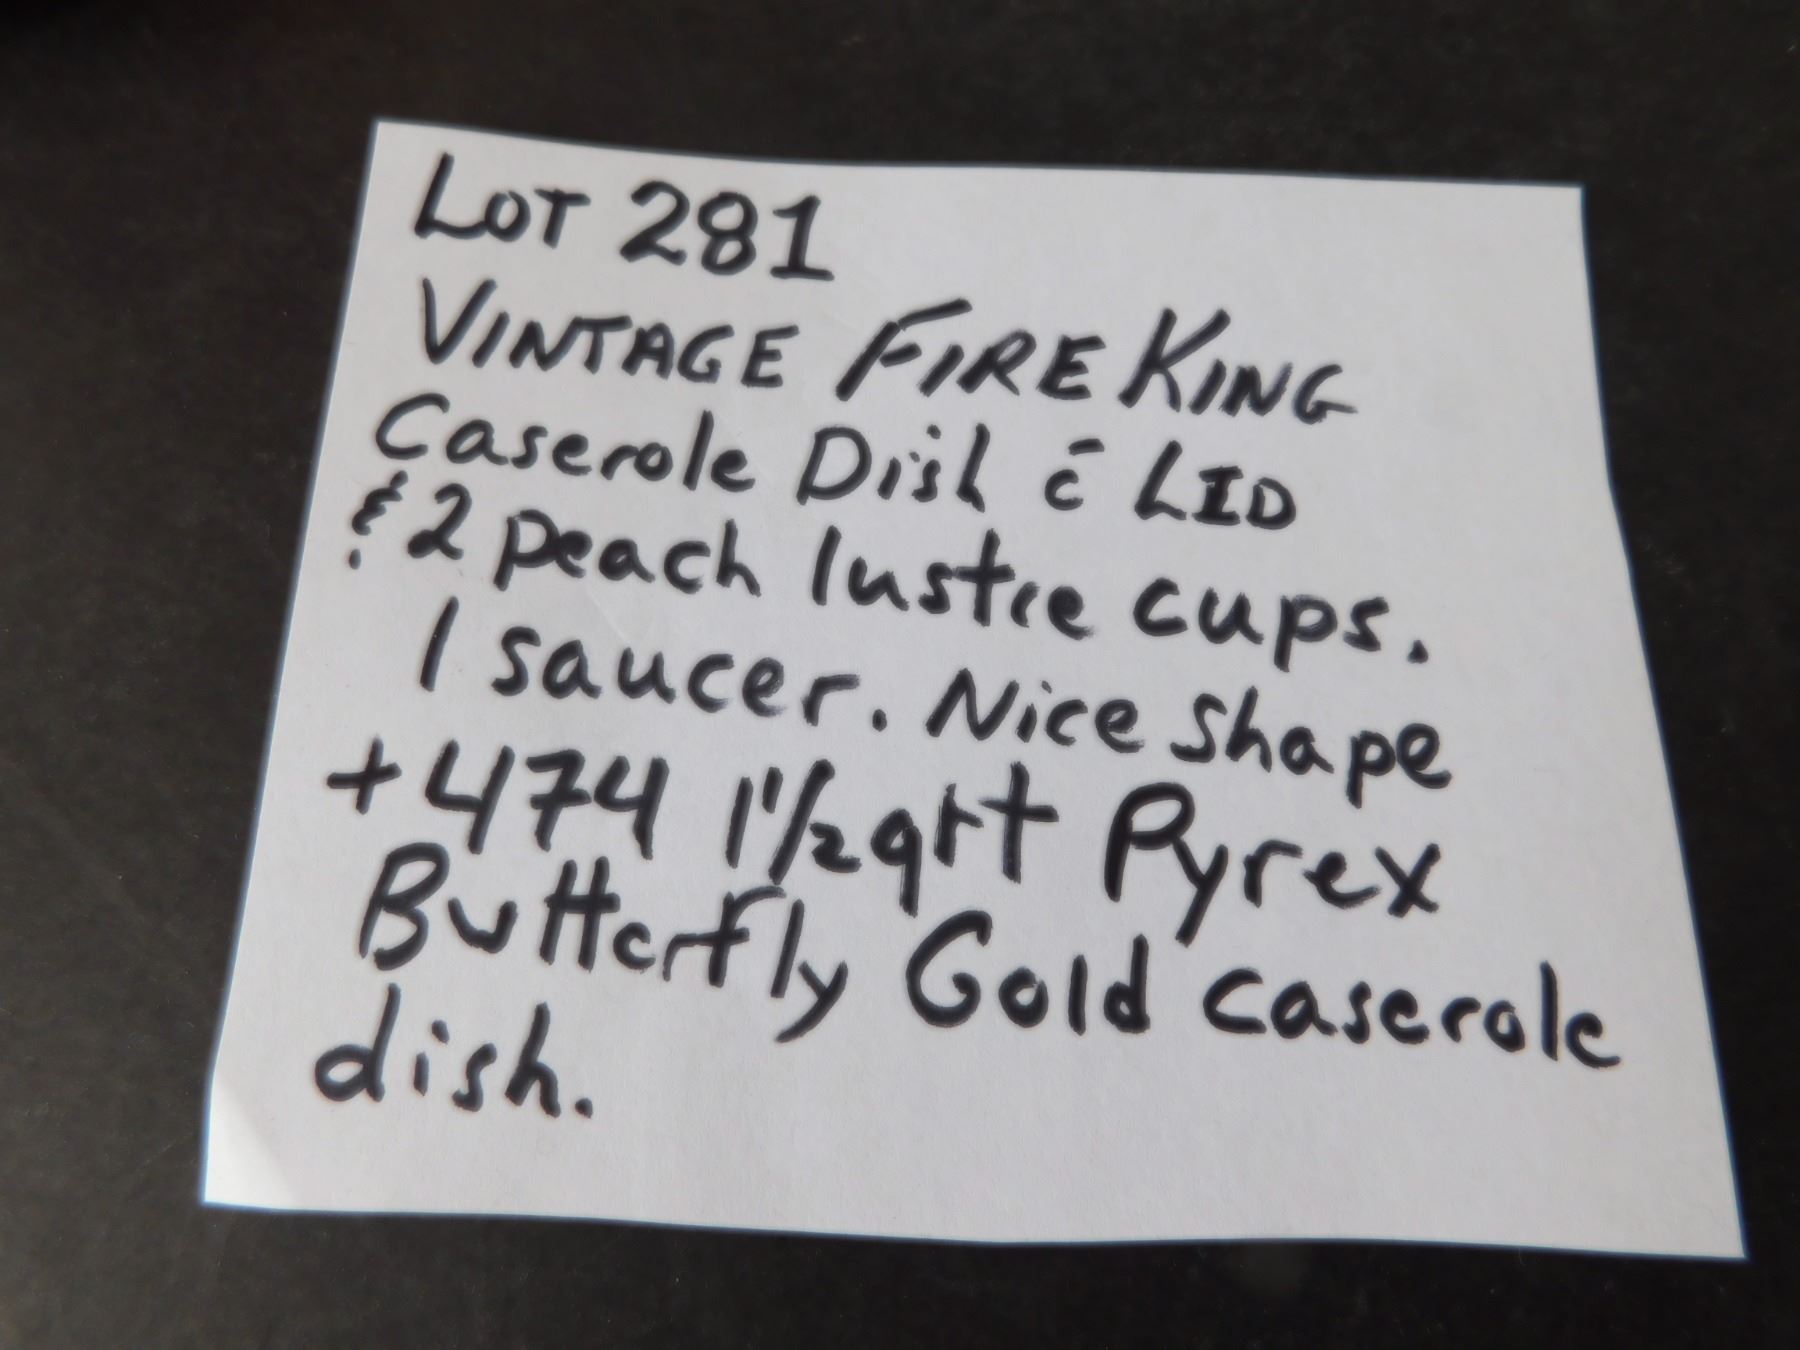 LOT 281
VINTAGE FIRE KING
Caserole Dish c̄ LID
& 2 peach lustre cups.
1 saucer. Nice shape
+ 474 1 1/2 qrt Pyrex
Butterfly Gold caserole
dish.